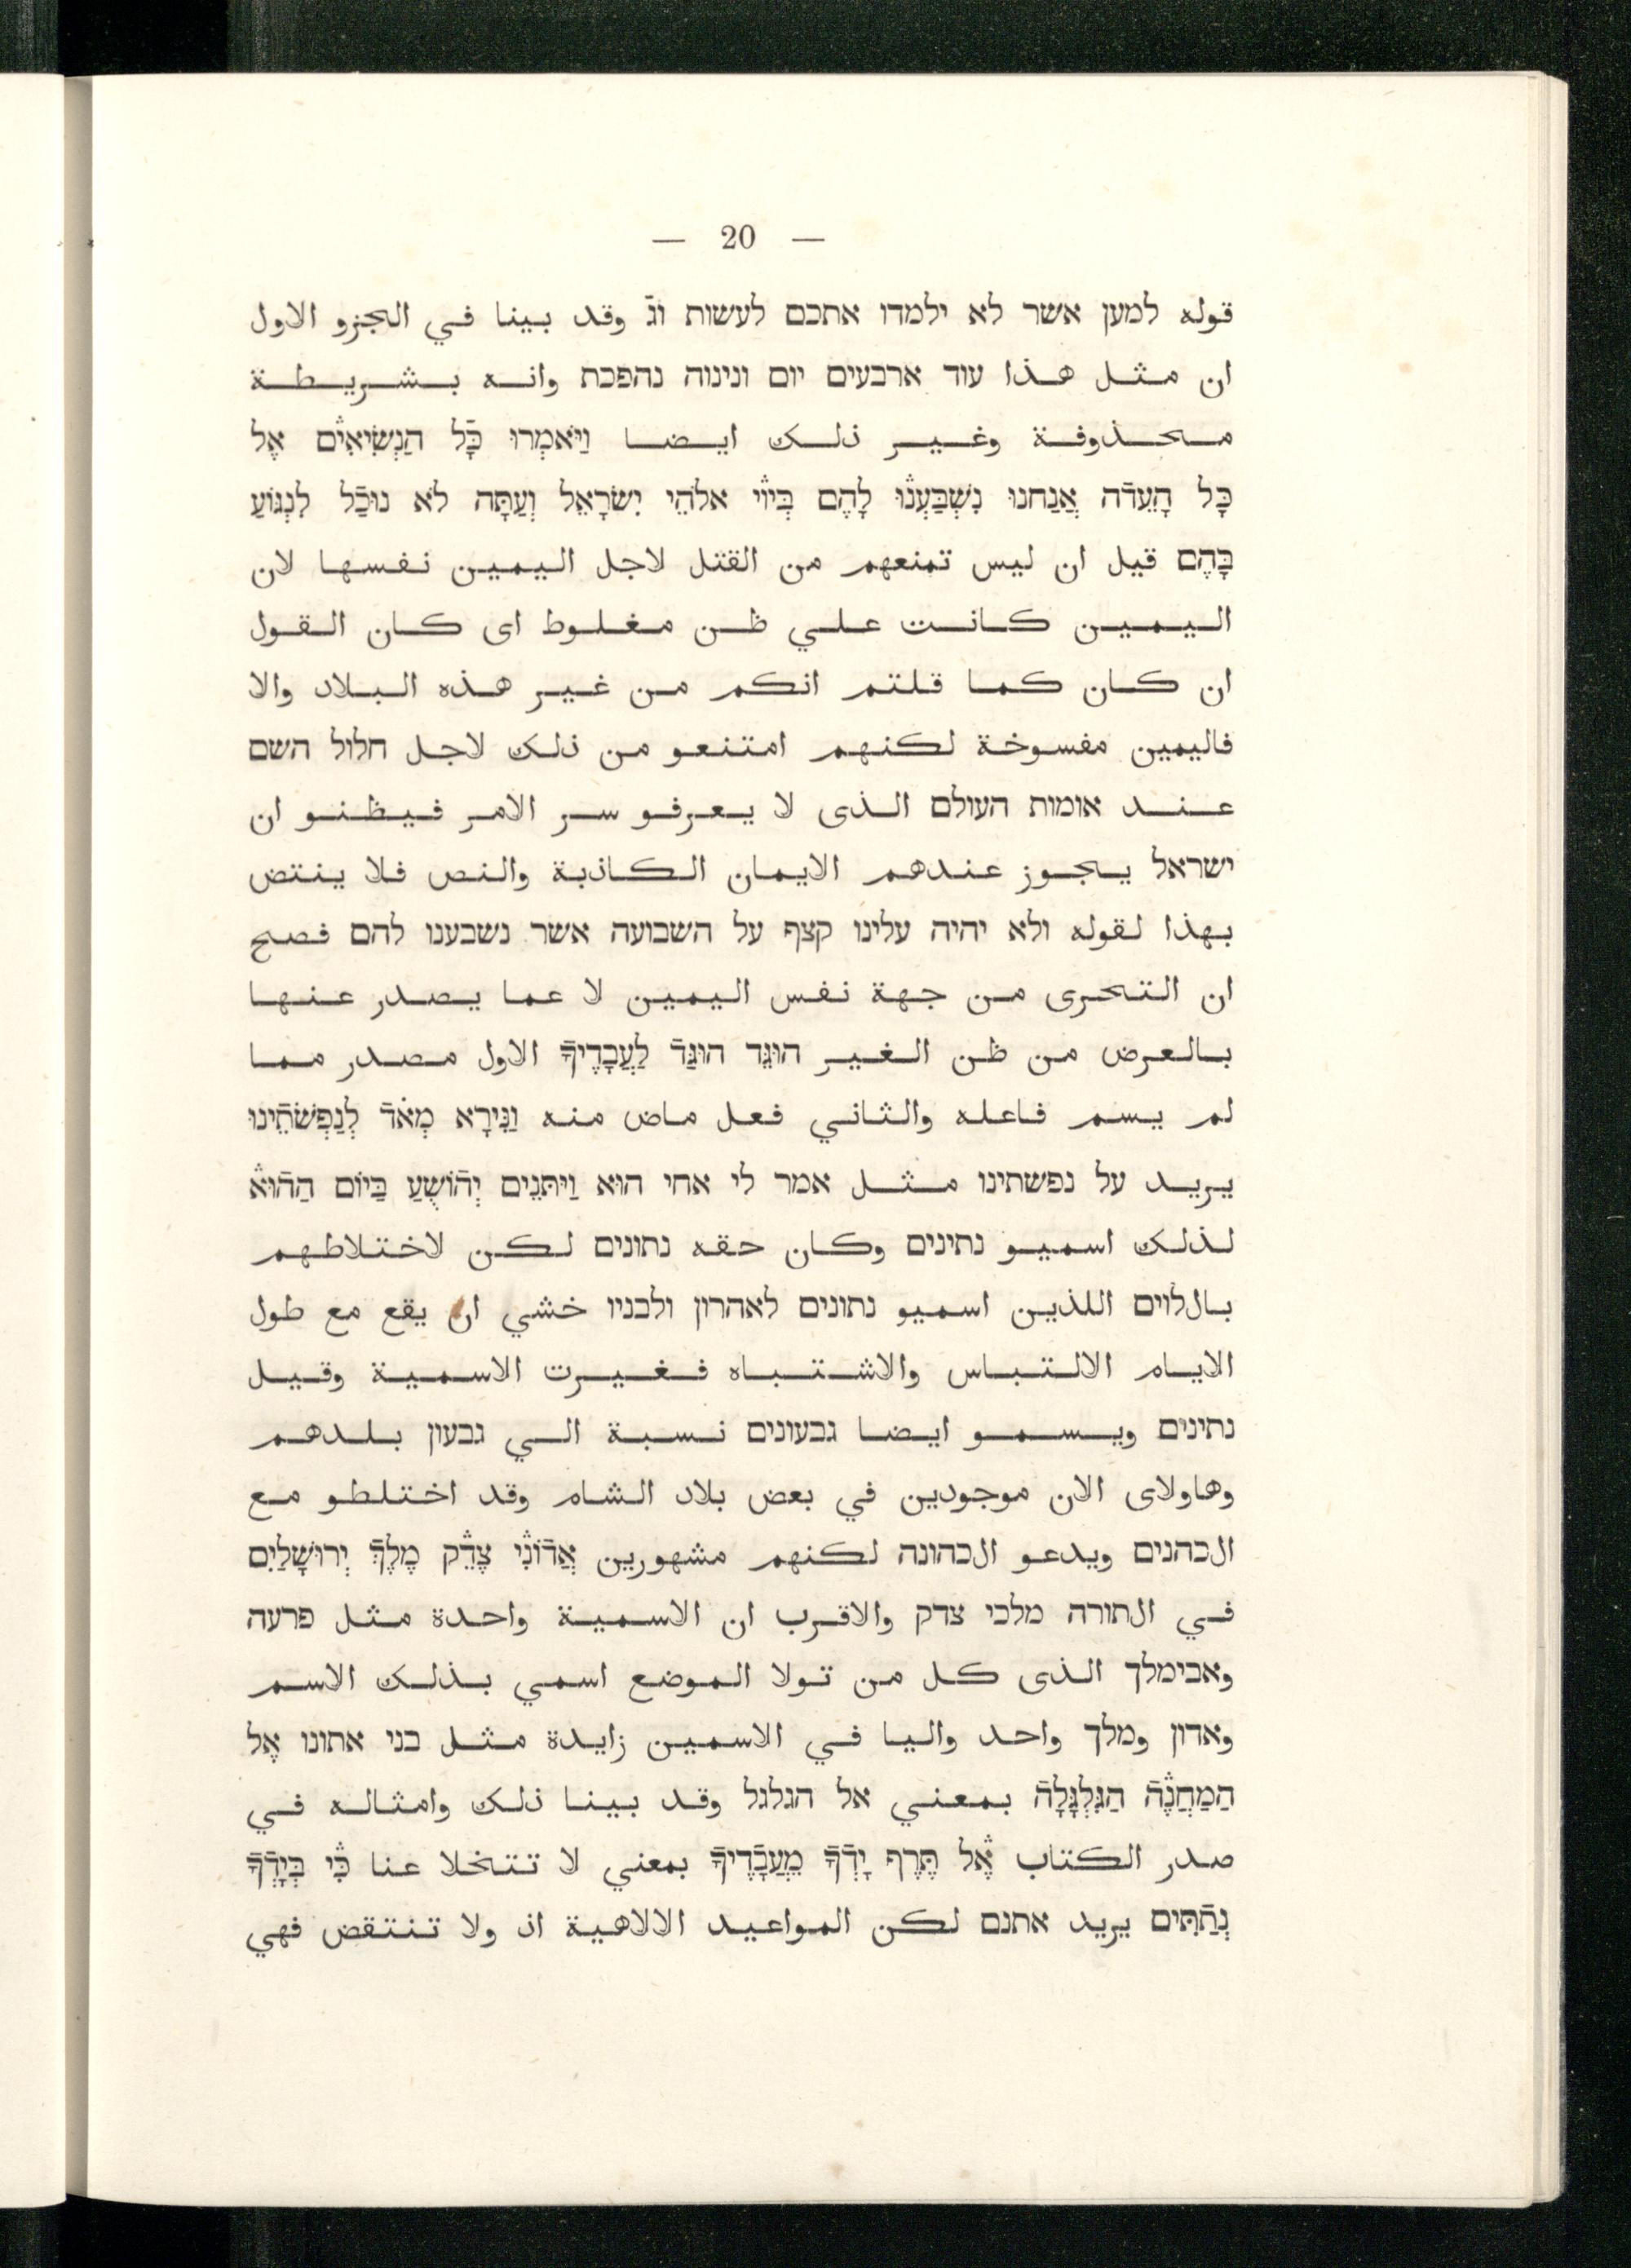 — 20 —
قوله למען אשר לא ילמדו אתכם לעשות וג̄ وقد بينا في الجزو الاول
ان مثل هذا עוד ארבעים יום ונינוה נהפכת وانه بشريطة
محذوفة وغير ذلك ايضا וַיֹּאמְרוּ כָּל הַנְשִׂיאִים אֶל
כָּל הָעֵדֿה אֲנַחנוּ נִשְׁבַּעְנוּ לָהֶם בְּיוֹי אלֹהֵי יִשׂרָאֵל וְעַתָּה לֹא נוּכַֿל לִנְגּוֹעַ
בָּהֶם قيل ان ليس تمنعهم من القتل لاجل اليمين نفسها لان
اليمين كانت علي ظن مغلوط اى كان القول
ان كان كما قلتم انكم من غير هذه البلاد والا
فاليمين مفسوخة لكنهم امتنعو من ذلك لاجل חלול השם
عند אומות העולם الذى لا يعرفو سر الامر فيظنو ان
ישראל يجوز عندهم الايمان الكاذبة والنص فلا ينتض
بهذا لقوله ולא יהיה עלינו קצף על השבועה אשר נשבענו להם فصح
ان التحرى من جهة نفس اليمين لا عما يصدر عنها
بالعرض من ظن الغير הוּגֵּד הוּגַּדֿ לַעֲבָדֶיךָֿ الاول مصدر مما
لم يسم فاعله والثاني فعل ماض منه וַנִּירָא מְאֹדֿ לְנַפְשֹׁתֵֿינוּ
يريد על נפשתינו مثل אמר לי אחי הוּא וַיִּתְּנֵים יְהוֹשֻׁעַ בַּיּוֹם הַהוּא
لذلك اسميو נתינים وكان حقه נתונים لكن لاختلاطهم
بالלוים اللذين اسميو נתונים לאהרון ולבניו خشي ان يقع مع طول
الايام الالتباس والاشتباه فغيرت الاسمية وقيل
נתינים ويسمو ايضا גבעונים نسبة الي גבעון بلدهم
وهاولاى الان موجودين في بعض بلاد الشام وقد اختلطو مع
الכהנים ويدعو الכהונה لكنهم مشهورين אֲדֿוֹנִי צֶדֶֿק מֶלֶךְֿ יְרוּשָׁלַיִם
في الתורה מלכי צדק والاقرب ان الاسمية واحدة مثل פרעה
ואבימלך الذى كل من تولا الموضع اسمي بذلك الاسم
ואדון ומלך واحد واليا في الاسمين زايدة مثل בני אתונו אֶל
הַמַּחֲנֶהֿ הַגִּלְגָּלָהֿ بمعني אל הגלגל وقد بينا ذلك وامثاله في
صدر الكتاب אַל תֶּרֶף יָדְֿךָֿ מֵעֲבָֿדֶיךָֿ بمعني لا تتخلا عنا כִּי בְּיָדְֿךָֿ
נְתַֿתִּים يريد אתנם لكن المواعيد الالاهية اذ ولا تنتقض فهي